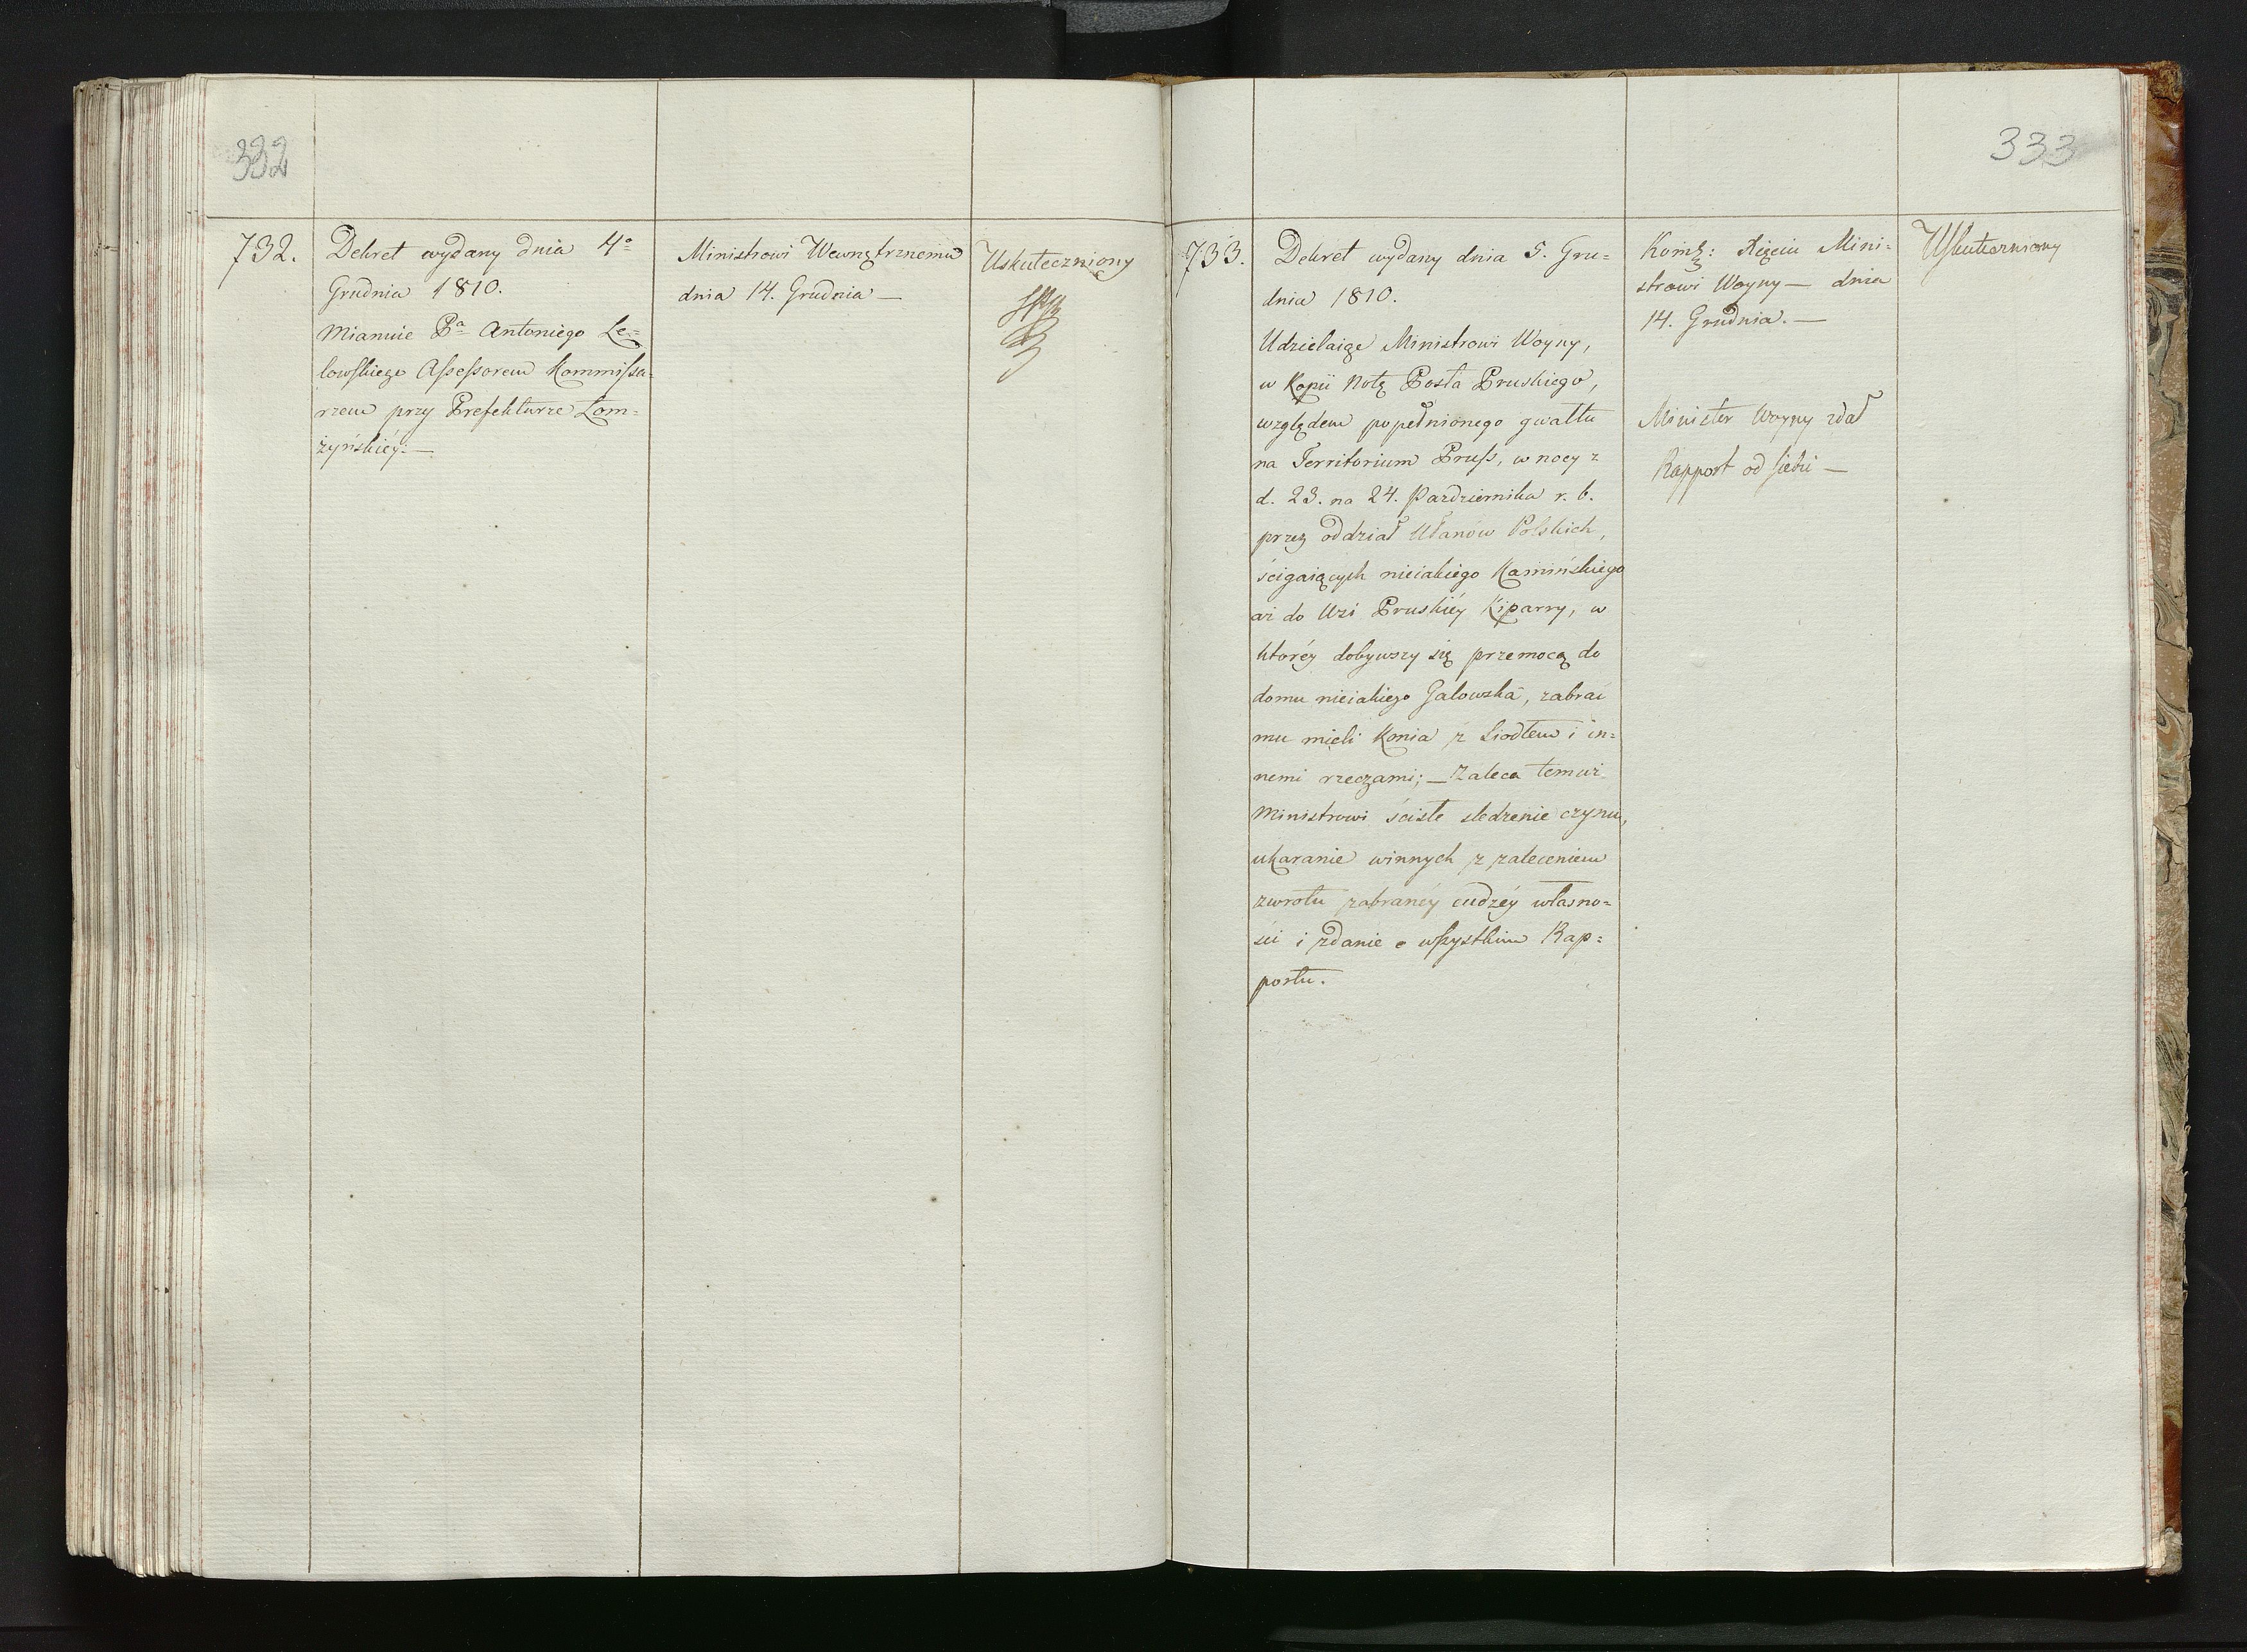 332
732.
Dekret wydany dnia 4º
Grudnia 1810.
Mianuie Pª Antoniego Le=
lowskiego Assessorem Kommissa=
rzem przy Prefekturze Łom=
żyńskiéy.—
Ministrowi Wewnętrznemu
dnia 14. Grudnia —
Uskuteczniony
333
733.
Dekret wydany dnia 5. Gru=
dnia 1810.
Udzielaiąc Ministrowi Woyny,
w Kopii Notę Posła Pruskiego,
względem popełnionego gwałtu
na Territorium Pruss, w nocy z
d. 23. na 24. Pazdziernika r. b.
przez oddział Ułanów Polskich,
ścigaiących nieiakiego Kamińskiego
aż do Wsi Pruskiéy Kiparry, w
któréy dobywszy się przemocą do
domu nieiakiego Galowska, zabrać
mu mieli Konia z Siodłem i in=
nemi rzeczami; — Zaleca temuż
Ministrowi ścisłe sledzenie czynu,
ukaranie winnych z zaleceniem
zwrotu zabranéy cudzéy własno=
ści i zdanie o wszystkim Rap=
portu.
Xięciu Mini=
strowi Woyny — dnia
14. Grudnia. —
Minister Woyny zdał
Rapport od siebie —
Uskuteczniony